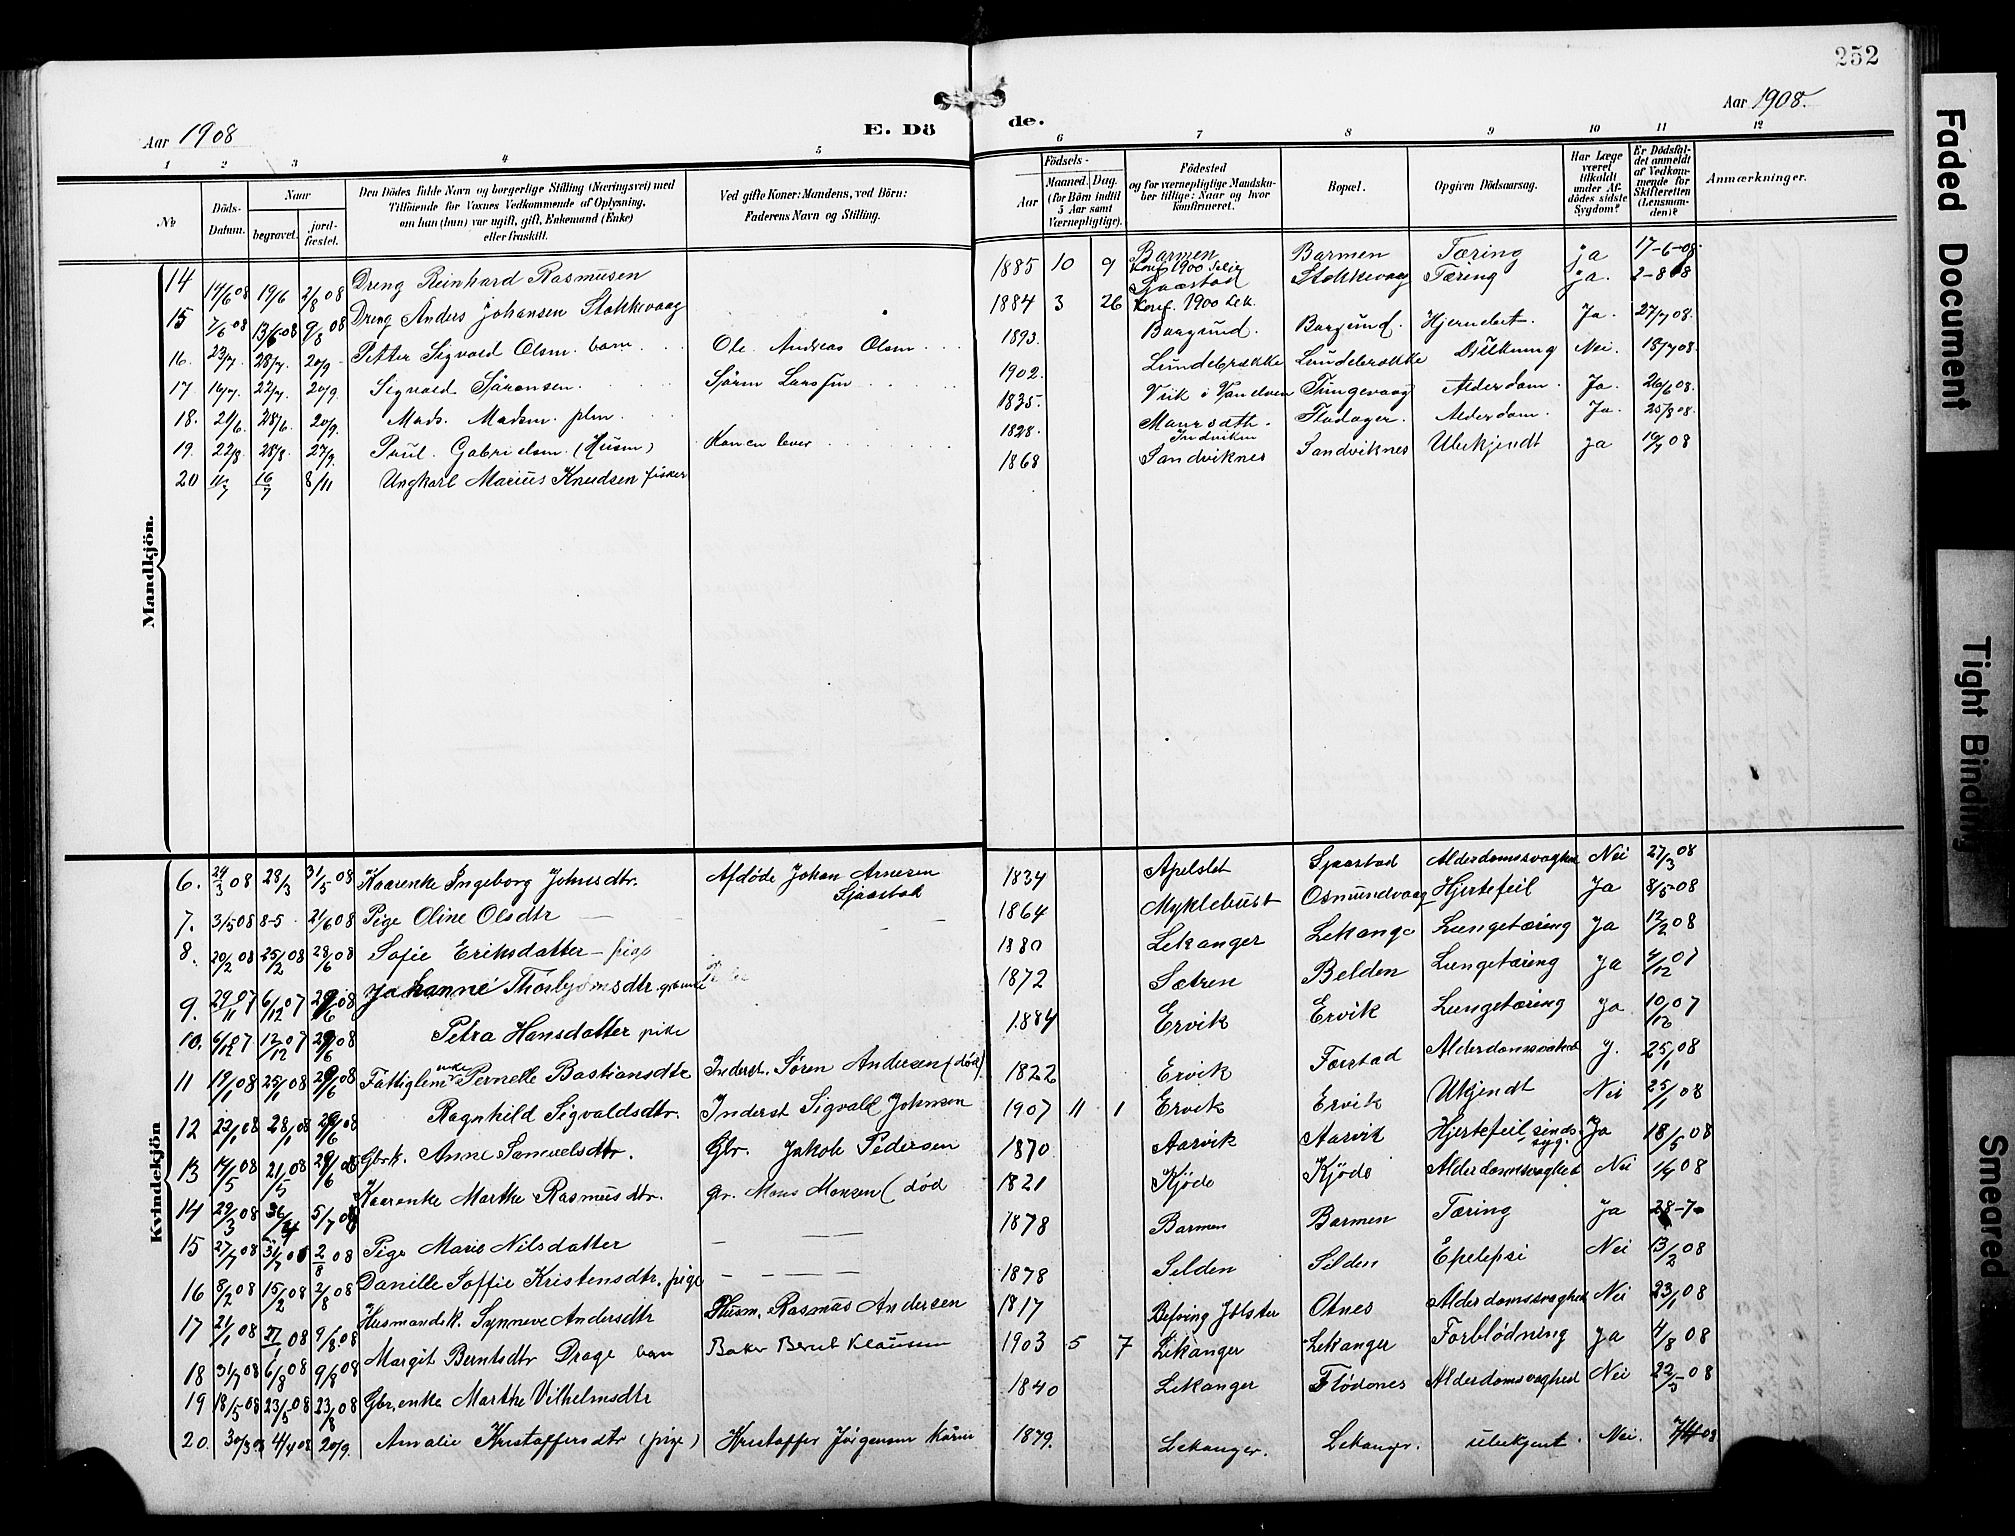 252
Aar 1908
E. Dö
de.
Aar 1908.
1 2 3 4 5 6 7 8 9 10 11 12
No
Döds-
Datum.
Naar
begravet.
jord-
fæstet.
Den Dödes fulde Navn og borgerlige Stilling (Næringsvei) med
Tilföiende for Voxnes Vedkommende af Oplysning,
om han (hun) var ugift, gift, Enkemand (Enke)
eller fraskilt.
Ved gifte Koner: Mandens, ved Börn:
Faderens Navn og Stilling.
Födsels-
Aar
Maaned. Dag.
(for Börn indtil
5 Aar samt
Værnepligtige).
Födested
og for værnepligtige Mandska-
ber tillige: Naar og hvor
konfirmeret.
Bopæl.
Opgiven Dödsaarsag.
Har Læge
været
tilkaldt
under Af-
dödes sidste
Sygdom?
Er Dödsfal-
det anmeldt
af Vedkom-
mende for
Skifteretten
(Lensman-
den)?
Anmærkninger.
Mandkjön.
14 14/6 08 19/6 2/8 08 Dreng Reinhard Rasmusen 1885 10 9 Barmen Konf. 1900 Selje Barmen Tæring ja 17-6-08
15 7/6 08 13/6 08 9/8 08 Dreng Anders Johansen Stokkevaag 1884 3 26 Sjaastad Konf. 1900 Lek. Stokkevaag Tæring ja. 2-8 08
16. 23/7. 28/7. 20/9 Petter Sigvald Olsen. barn Ole Andreas Olsen 1893. Borgund. Borgund. Hjernebet. Ja. 27/7 08.
17. 16/7. 22/7. 20/9. Sigvald Sörensen. Sjörn Larssen 1902. Lundebrække Lundebrække Drukning Nei. 18/7 08.
18. 21/6. 28/6. 20/9. Mads. Madsen. 1835. Vik i Vandven Tungevaag Alderdom. Ja. 26/6 08.
19. 22/8. 28/8. 27/9. Paul Gabrielsen. (Husm) Konen lever 1828. Maursdth. Indviken Flodager. Alderdom. Ja. 25/8 08.
20 11/7 16/7 8/11 Ungkarl Marius Knudsen fisker 1868 Sandviknes Sandviknes Ubekjendt ja 16/7 08
Kvindekjön
6. 24/3 08 28/3 31/5 08 Kaarenke Ingeborg Johnsdtr. Afdöde Johan Arnesen Sjaastad 1834 Apelset Sjaastad Alderdomssvaghed Nei 27/3 08
7. 3/5 08 8-5 21/6 08 Pige Oline Olsdtr 1864 Myklebust Osmundvaag Hjertefeil Ja 8/5-08
8. 20/2 08 25/2 08 28/6 08 Sofie Eriksdatter - pige 1880 Lekanger Lekange Lungetæring Ja 12/2 08
9. 29/11 07 6/12 07 29/6 08 Johanne 1872 Sætren Belden Lungetæring Ja 4/12 07
10. 6/12 07 12/12 07 29/6 08 Petra Hansdatter pike 1884 Ervik Ervik Lungetæring Ja 10/12 07
11 19/1 08 25/1 08 29/6 08 Fattiglem enke Pernelle Bastiansdtr Inderst. Sören Andersen (död) 1822 Ervik Færstad Alderdomssvaghed j. 25/1 08
12 22/1 08 28/1 08 29/6 08 Ragnhild Sigvaldsdtr. Inderst Sigvald Johnsen 1907 11 1 Ervik Ervik Ukjendt Nei 25/1 08
13 17/5 08 21/5 08 29/6 08 Gbrk. Anne Samuelsdtr. Gbr. Jakob Pedersen 1870 Aarvik Aarvik Hjertefeil, sinds-syg. Ja 18/5 08
14 29/3 08 5/7 08 Kaarenke Marthe Rasmusdtr. gbr. Mons Monsen (död 1821 Kjöde Kjöde Alderdomssvaghed Nei 1/4 08
15 27/7 08 31/7 08 2/8 08 Pige Marie Nilsdatter — — — 1878 Barmen Barmen Tæring Ja 28-7-
16 8/2 08 15/2 08 2/8 08 Danille Soffie Kristensdtr. pige — — — — 1878 Selden Selden Epelepsi Nei 13/2 08
17 21/1 08 27/1 08 9/8.08 Husmandsk. Synneve Andersdtr Husm. Rasmus Andersen 1817 Befring Jölster Otnes Alderdomssvaghed Nei 23/1 08
18 31/7 08 6/8 08 9/8 08 Margit Berntsdtr Drage barn Baker Bernt Klausen 1903 5 7 Lekanger Lekanger Forblödning Ja 4/8 08
19 18/5 08 23/5 08 23/8 08 Gbr.enke Marthe Vilhelmsdtr 1840 Lekanger Flödenes Alderdomssvaghed Nei 22/5-08
20. 30/3 08 4/4 08 20/9. Amalie Kristoffersdtr (pige) Kristoffer Jörgensen 1879. Lekanger. Lekangr. ubekjent. Nei.
Faded Document
Tight Binding
Smeared